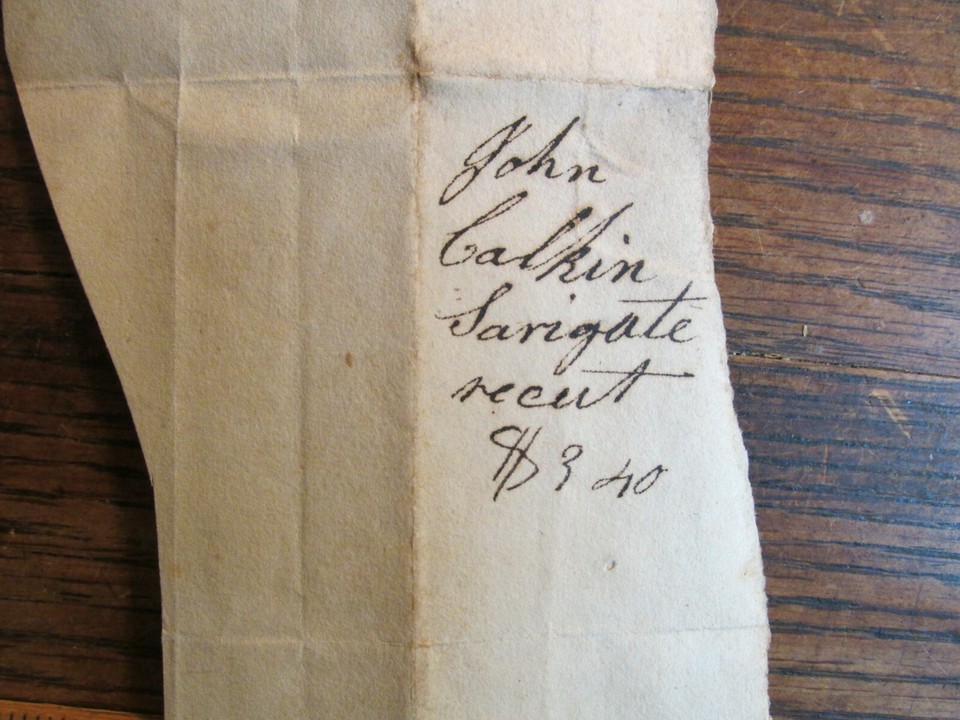 John
Calkin
Sarigate
recut
$3 40